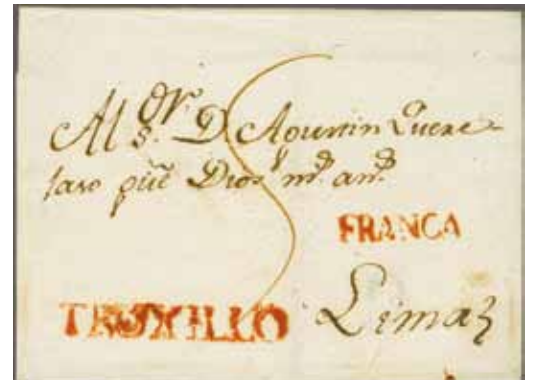 Al Sor. D. Agustin Quere-
taro que Dios g. ms. as.
FRANCA
TRUXILLO
Lima